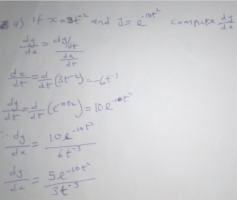 4) If x=3t⁻² and y = e^-10t² compute dy/dx
dy/dx = (dy/dt)/(dx/dt)
dx/dt = d/dt (3t⁻²) = -6t⁻³
dy/dt = d/dt = 10e^-10t²
∴ dy/dx = 10e^-10t² / 6t⁻³
dy/dx = 5e^-10t² / 3t⁻³